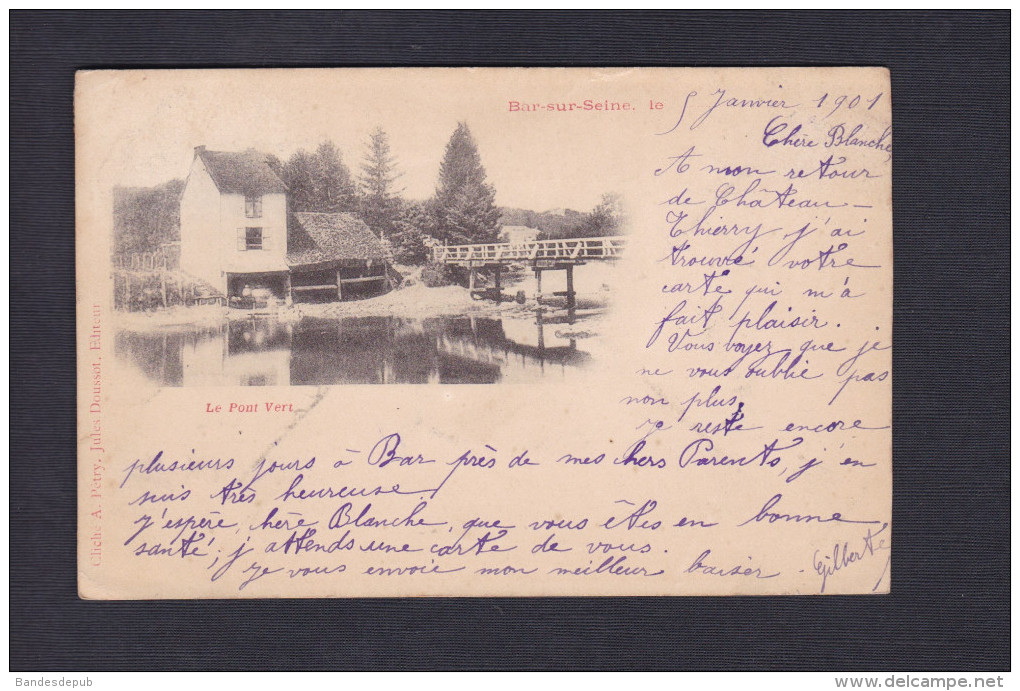 Bar-sur-Seine, le 5 Janvier 1901
Chère Blanche,
A mon retour
de Château-
Thierry j'ai
trouvé votre
carte qui m'a
fait plaisir.
Vous voyez que je
ne vous oublie pas
non plus.
Je reste encore
plusieurs jours à Bar près de mes chers Parents, j'en
suis très heureuse.
J'espère, hère Blanche, que vous êtes en bonne
santé; j'attends une carte de vous.
Je vous envoie mon meilleur baiser - Gilberte
Le Pont Vert
Cliché A. Pétry, Jules Doussot, Editeur
Bandesdepub
www.delcampe.net